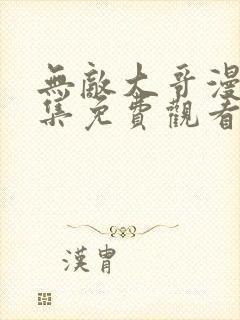 無敵大哥漫
集免費觀看
漢胄